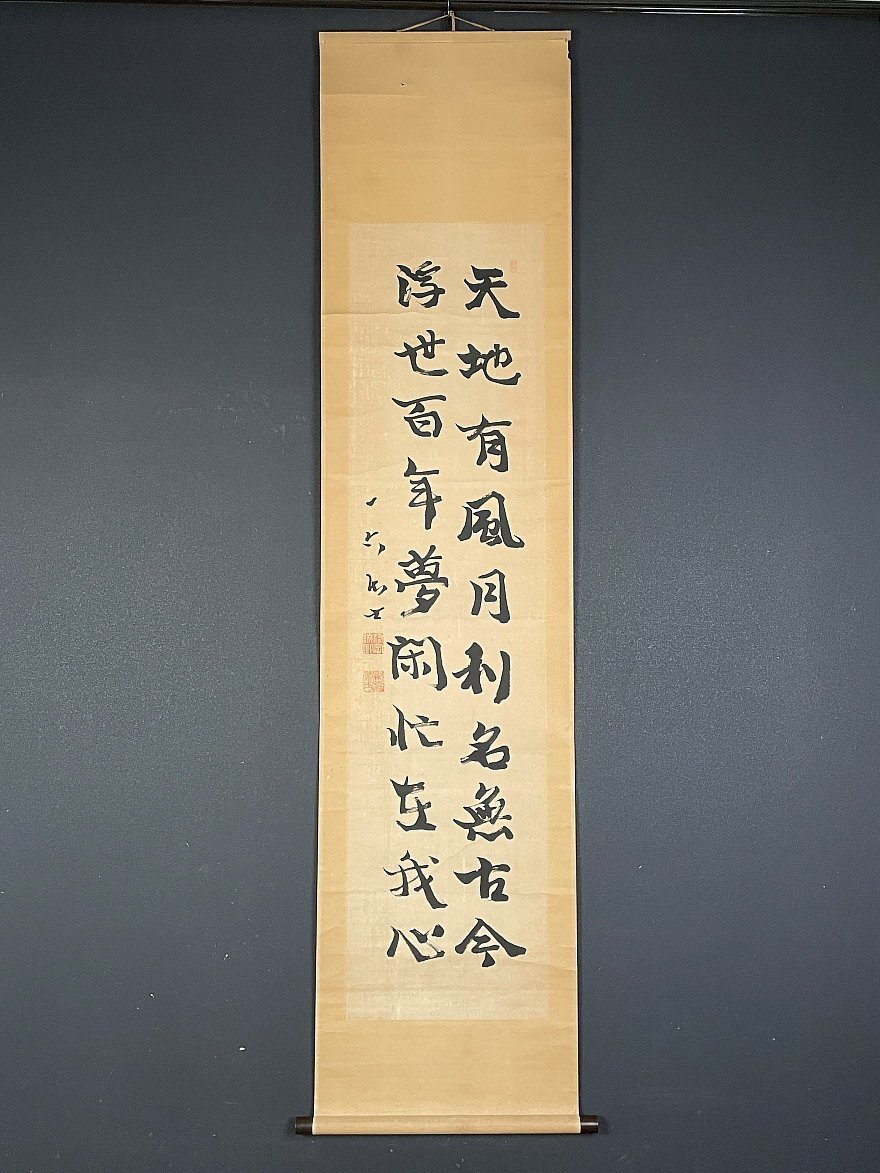 天地有風月利名無古今
浮世百年夢閑忙在我心
一六居士